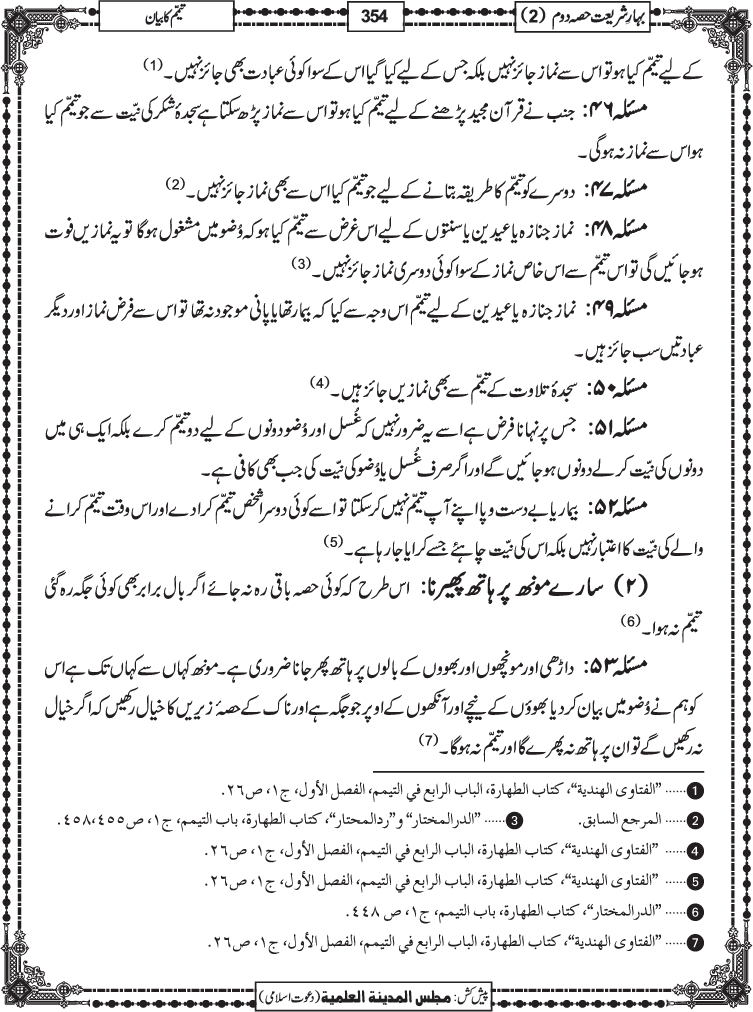 بہارِ شریعت حصہ دوم (2)
354
تیمّم کا بیان
کے لیے تیمّم کیا ہو تو اس سے نماز جائز نہیں بلکہ جس کے لیے کیا گیا اس کے سوا کوئی عبادت بھی جائز نہیں۔ (1)
مسئلہ ۴۶: جنب نے قرآن مجید پڑھنے کے لیے تیمّم کیا ہو تو اس سے نماز پڑھ سکتا ہے سجدۂ شکر کی نیّت سے جو تیمّم کیا
ہو اس سے نماز نہ ہوگی۔
مسئلہ ۴۷: دوسرے کو تیمّم کا طریقہ بتانے کے لیے جو تیمّم کیا اس سے بھی نماز جائز نہیں۔ (2)
مسئلہ ۴۸: نماز جنازہ یا عیدین یا سنتوں کے لیے اس غرض سے تیمّم کیا ہو کہ وُضو میں مشغول ہوگا تو یہ نمازیں فوت
ہو جائیں گی تو اس تیمّم سے اس خاص نماز کے سوا کوئی دوسری نماز جائز نہیں۔ (3)
مسئلہ ۴۹: نماز جنازہ یا عیدین کے لیے تیمّم اس وجہ سے کیا کہ بیمار تھا یا پانی موجود نہ تھا تو اس سے فرض نماز اور دیگر
عبادتیں سب جائز ہیں۔
مسئلہ ۵۰: سجدۂ تلاوت کے تیمّم سے بھی نمازیں جائز ہیں۔ (4)
مسئلہ ۵۱: جس پر نہانا فرض ہے اسے یہ ضرور نہیں کہ غُسل اور وُضو دونوں کے لیے دو تیمّم کرے بلکہ ایک ہی میں
دونوں کی نیّت کر لے دونوں ہو جائیں گے اور اگر صرف غُسل یا وُضو کی نیّت کی جب بھی کافی ہے۔
مسئلہ ۵۲: بیمار یا بے دست و پا اپنے آپ تیمّم نہیں کر سکتا تو اسے کوئی دوسرا شخص تیمّم کرا دے اور اس وقت تیمّم کرانے
والے کی نیّت کا اعتبار نہیں بلکہ اس کی نیّت چاہئے جسے کرایا جا رہا ہے۔ (5)
(۲) سارے مونھ پر ہاتھ پھیرنا: اس طرح کہ کوئی حصہ باقی رہ نہ جائے اگر بال برابر بھی کوئی جگہ رہ گئی
تیمّم نہ ہوا۔ (6)
مسئلہ ۵۳: داڑھی اور مونچھوں اور بھووں کے بالوں پر ہاتھ پھر جانا ضروری ہے۔ مونھ کہاں سے کہاں تک ہے اس
کو ہم نے وُضو میں بیان کر دیا بھوؤں کے نیچے اور آنکھوں کے اوپر جو جگہ ہے اور ناک کے حصۂ زیریں کا خیال رکھیں کہ اگر خیال
نہ رکھیں گے تو ان پر ہاتھ نہ پھرے گا اور تیمّم نہ ہوگا۔ (7)
1 ...... ”الفتاوی الهندیة“، کتاب الطهارة، الباب الرابع في التیمم، الفصل الأول، ج۱، ص۲۶.
2 ...... المرجع السابق. 3 ...... ”الدرالمختار“ و”ردالمحتار“، کتاب الطهارة، باب التیمم، ج۱، ص۴۵۵،۴۵۸.
4 ...... ”الفتاوی الهندیة“، کتاب الطهارة، الباب الرابع في التیمم، الفصل الأول، ج۱، ص۲۶.
5 ...... ”الفتاوی الهندیة“، کتاب الطهارة، الباب الرابع في التیمم، الفصل الأول، ج۱، ص۲۶.
6 ...... ”الدرالمختار“، کتاب الطهارة، باب التیمم، ج۱، ص ۴۴۸.
7 ...... ”الفتاوی الهندیة“، کتاب الطهارة، الباب الرابع في التیمم، الفصل الأول، ج۱، ص۲۶.
پیش کش: مجلس المدینة العلمیة (دعوتِ اسلامی)